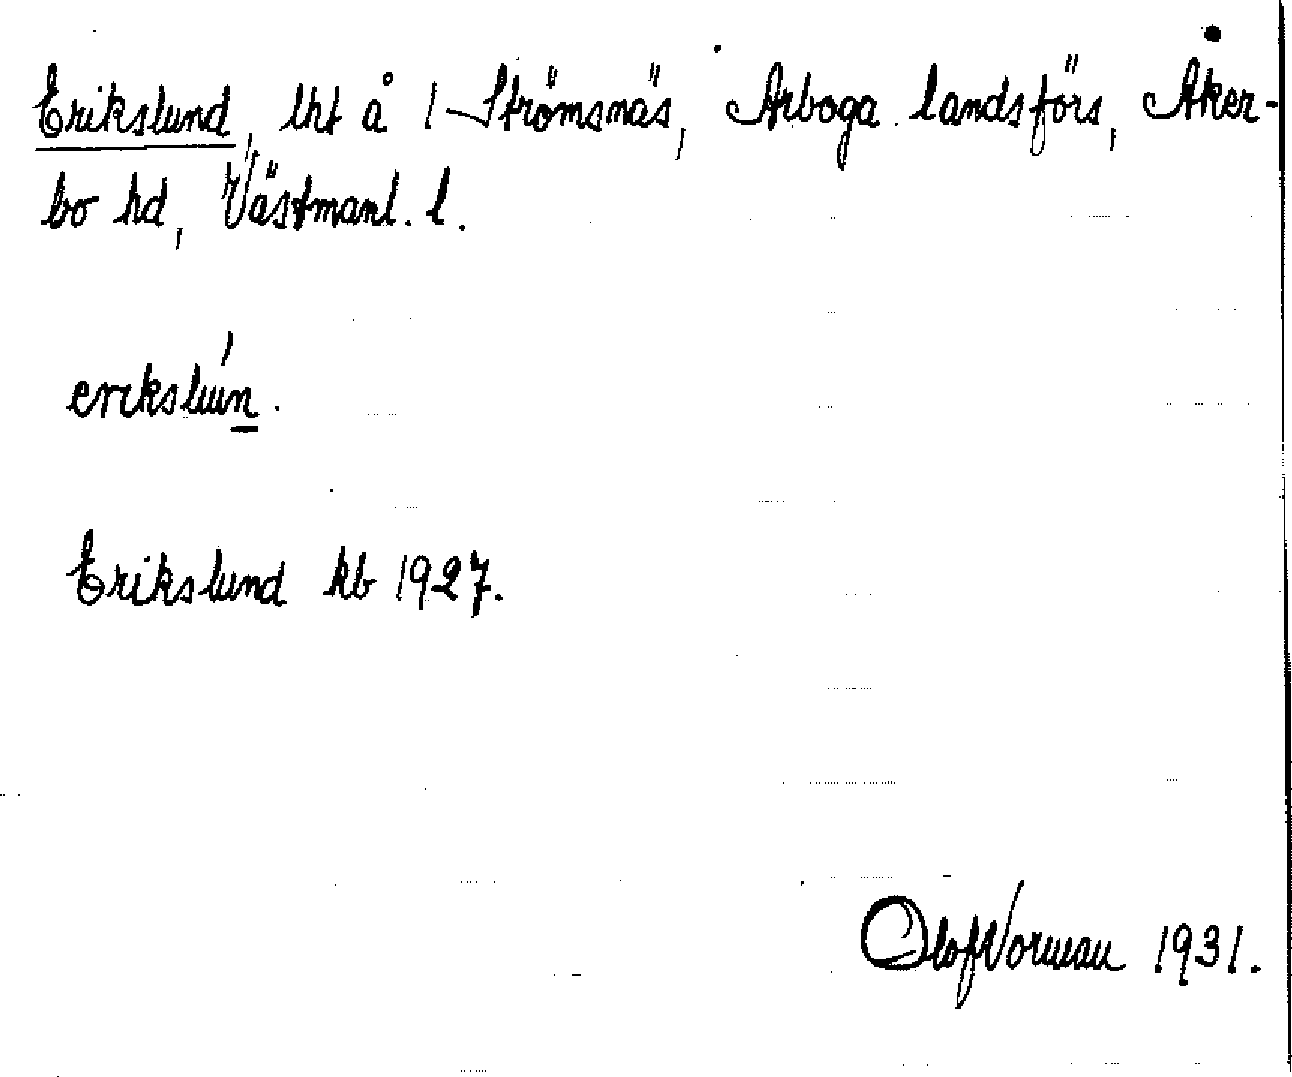 Erikslund, lht å 1 Strömsnäs, Arboga landsförs, Åker-
bo hd, Västmanl. l.
erikslún.
Erikslund kb 1927.
Olof Norman 1931.